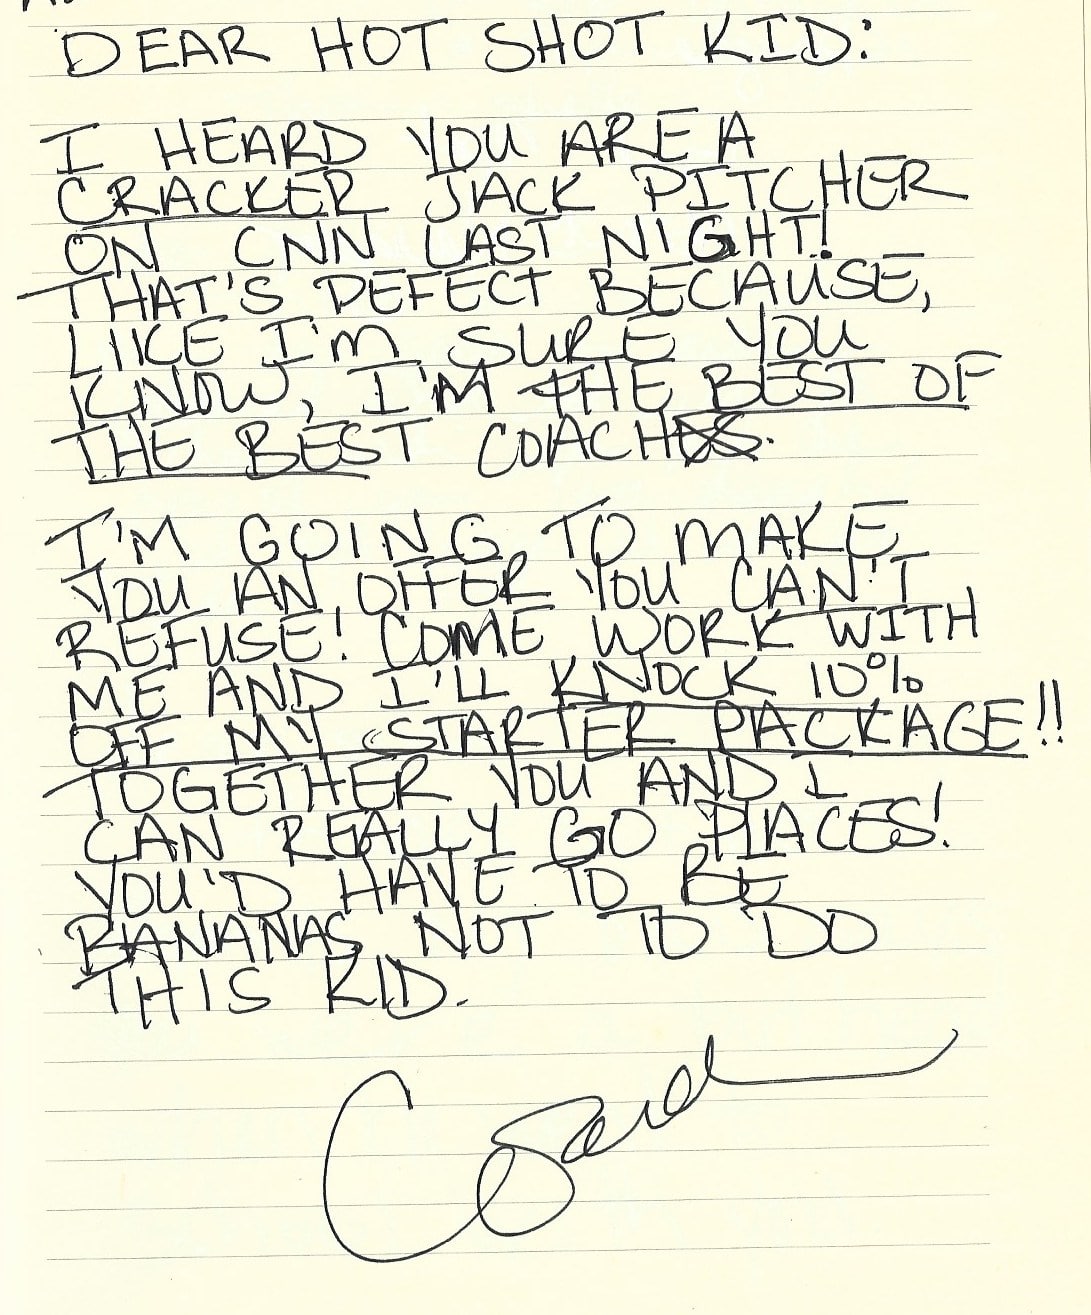 DEAR HOT SHOT KID:
I HEARD YOU ARE A
CRACKER JACK PITCHER
ON CNN LAST NIGHT!
THAT'S PEFECT BECAUSE,
LIKE I'M SURE YOU
KNOW, I'M THE BEST OF
THE BEST COACH
I'M GOING TO MAKE
YOU AN OFFER YOU CAN'T
REFUSE! COME WORK WITH
ME AND I'LL KNOCK 10%
OFF MY STARTER PACKAGE!!
TOGETHER YOU AND I
CAN REALLY GO PLACES!
YOU'D HAVE TO BE
BANANAS NOT TO DO
THIS KID.